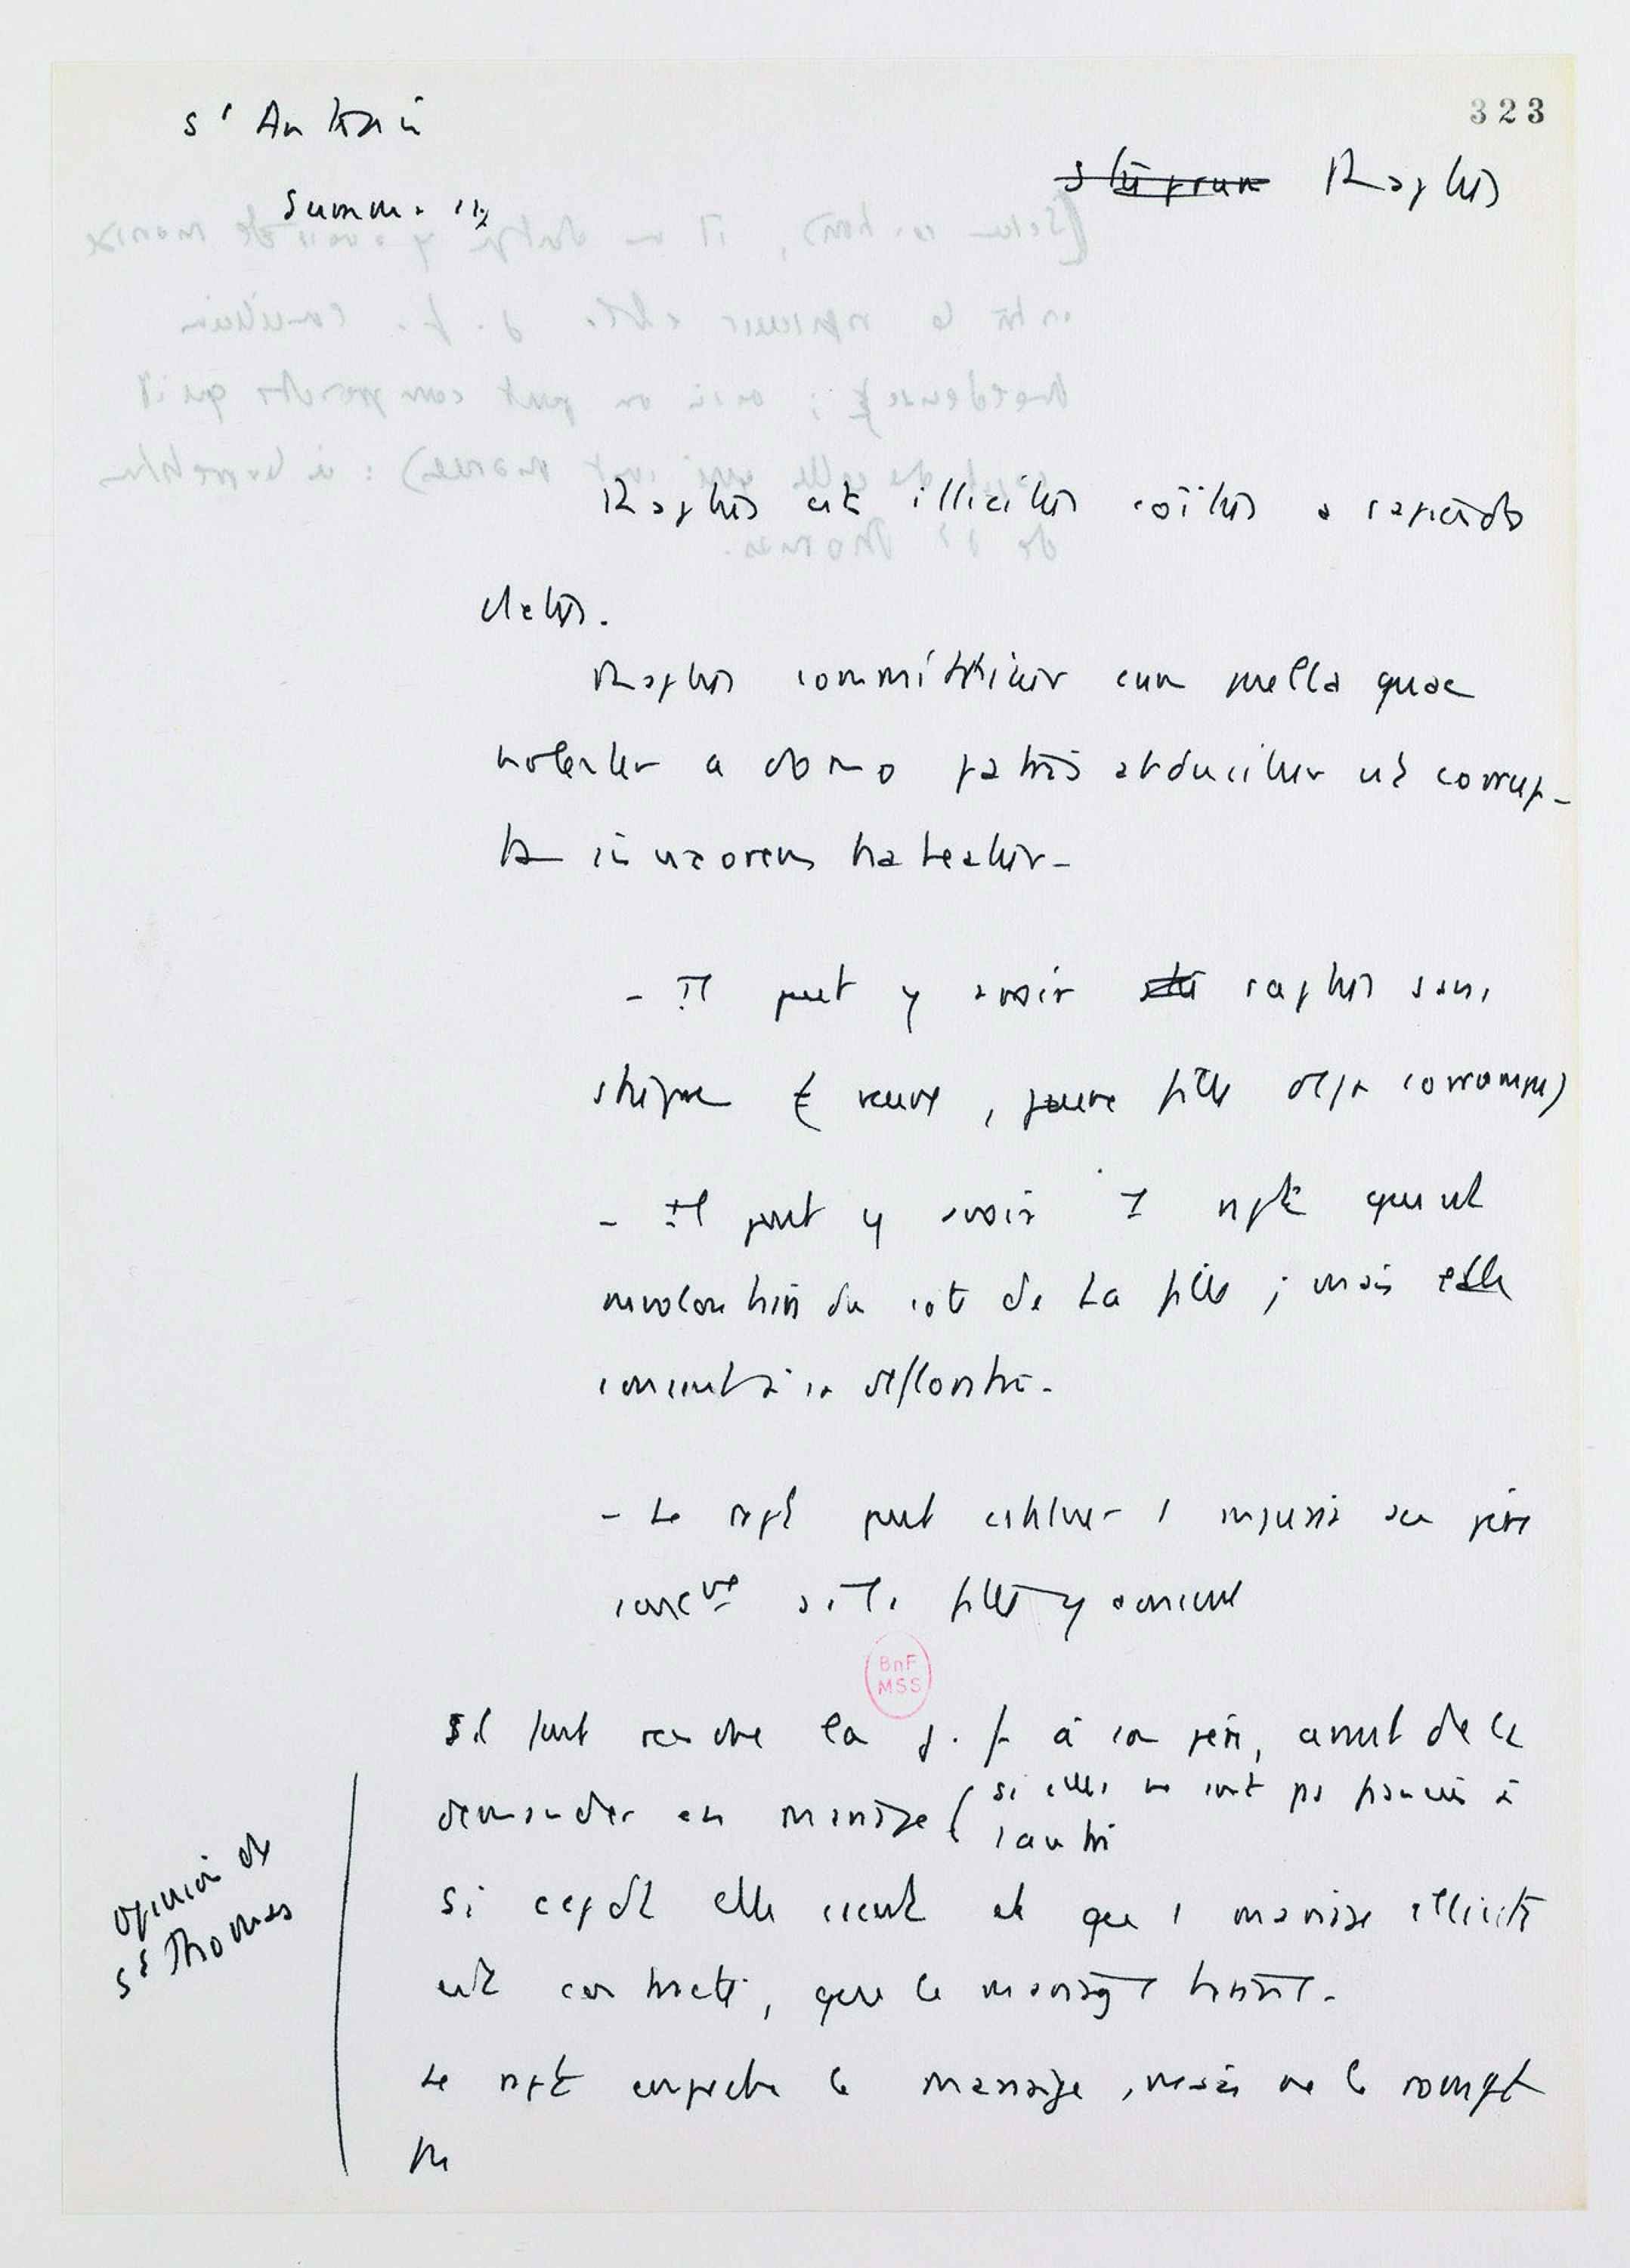 St Antonin
323
Summa
stuprum Raptus
Raptus est illicitus coïtus a rapiendo
dictus.
Raptus committitur cum puella quae
violenter a domo patris abducitur ut corrup-
ta in uxorem habeatur.
- Il peut y avoir raptus sans
stupre (veuve, jeune fille déjà corrompue)
- Il peut y avoir 1 rapt qui est
involontaire du coté de la fille ; mais elle
consent à sa défloration.
- Le rapt peut constituer 1 injure au père
même si la fille y consent
BnF
MSS
Il faut rendre la j. f. à son père, avant de la
demander en mariage (si elles ne sont pas fiancées à
1 autre
Si cepdt elle consent et que 1 mariage illicite
est contracté, que le mariage tienne.
Le rapt empêche le mariage, mais ne le rompt
pas
opinion de
St Thomas